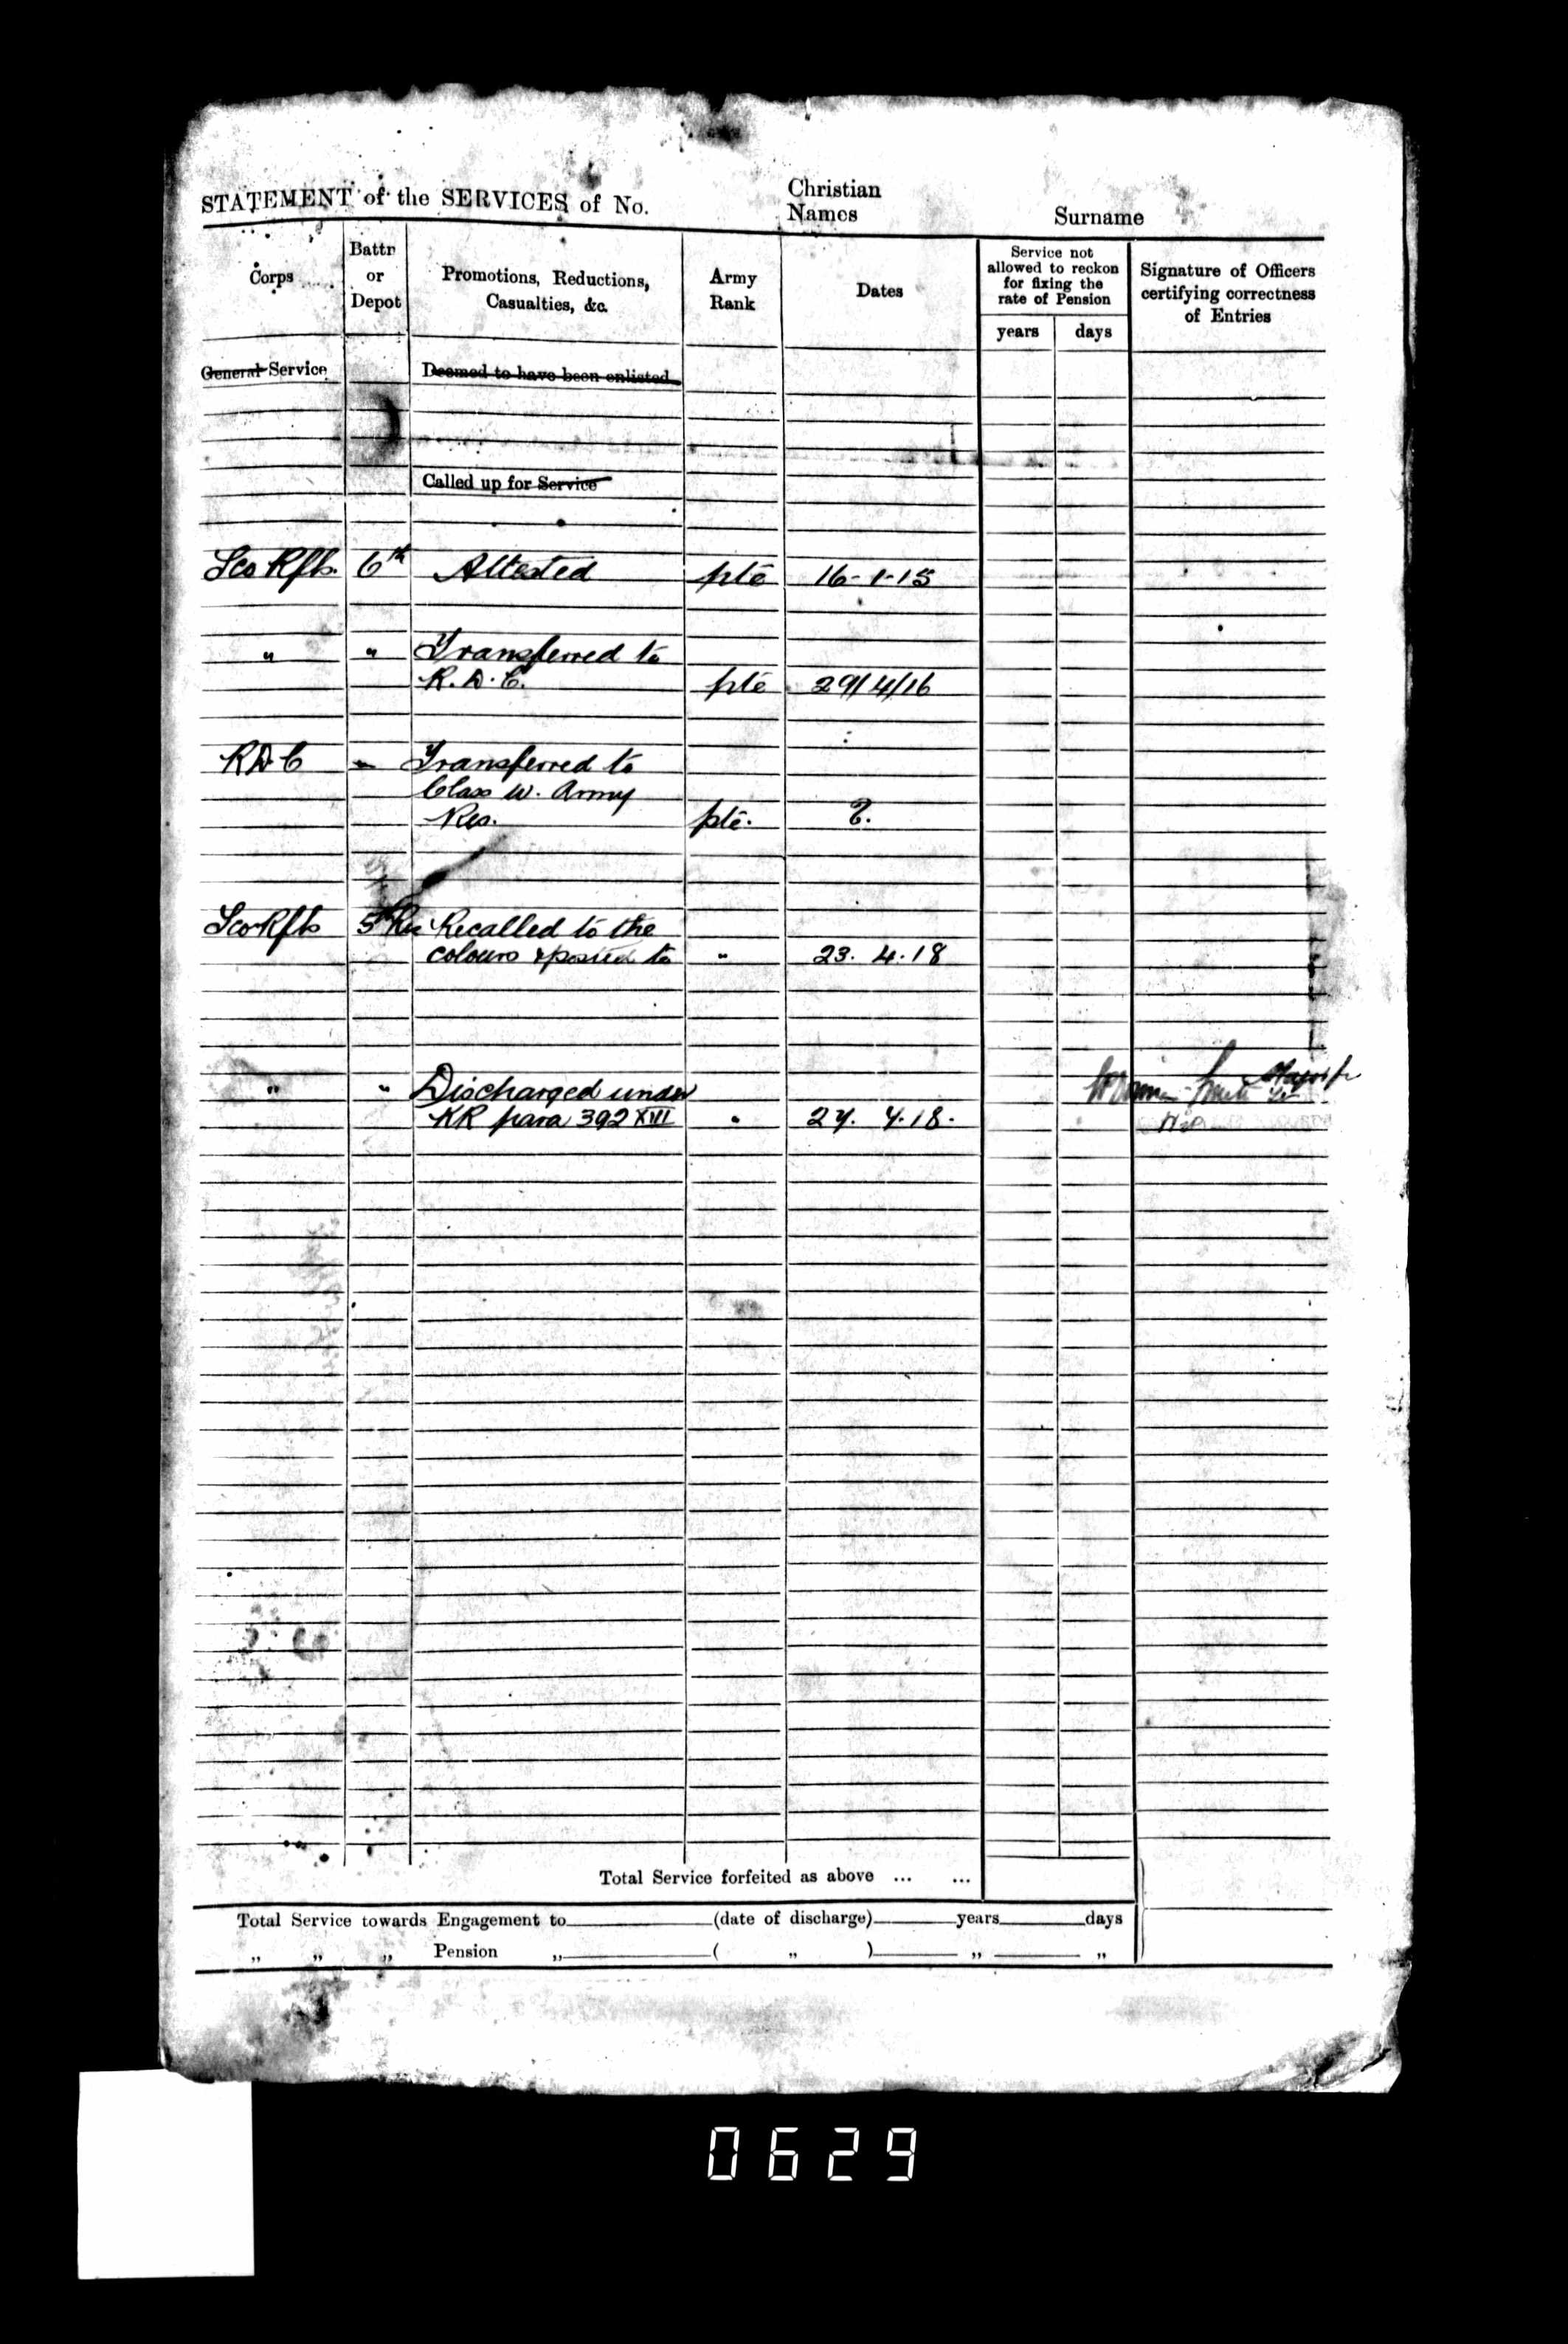 STATEMENT of the SERVICES of No. Christian Names Surname
Corps
Battn or Depot
Promotions, Reductions, Casualties, &c.
Army Rank
Dates
Service not allowed to reckon for fixing the rate of Pension
years days
Signature of Officers certifying correctness of Entries
General Service Deemed to have been enlisted
Called up for Service
Sco Rfls. 6th Attested pte 16-1-15
" " Transferred to
R.D.C. pte 29/4/16
RDC " Transferred to
Class W. Army
Res. pte. ?.
Sco Rfls 5 Res Recalled to the
colours & posted to " 23. 4. 18
" " Discharged under
KR para 392 XIII " 27. 4. 18.
Major
Total Service forfeited as above ... ...
Total Service towards Engagement to (date of discharge) years days
„ „ „ Pension „ ( „ ) „ „
0629